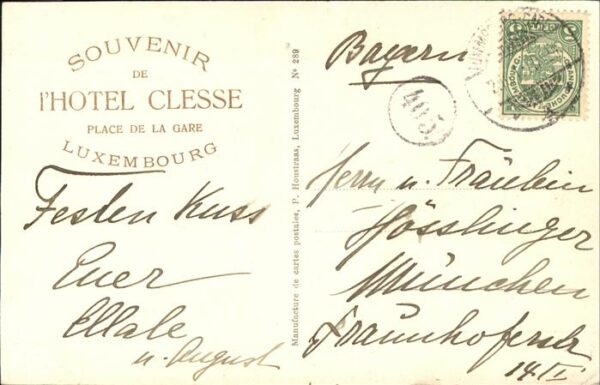 SOUVENIR
DE
l'HOTEL CLESSE
PLACE DE LA GARE
LUXEMBOURG
Festen Kuss
Euer
u. August
Manufacture de cartes postales, P. Houstraas, Luxembourg Nº 289
Bayern
403
Herrn u. Fräulein
Hösslinger
München
Fraunhoferstr
14.II.